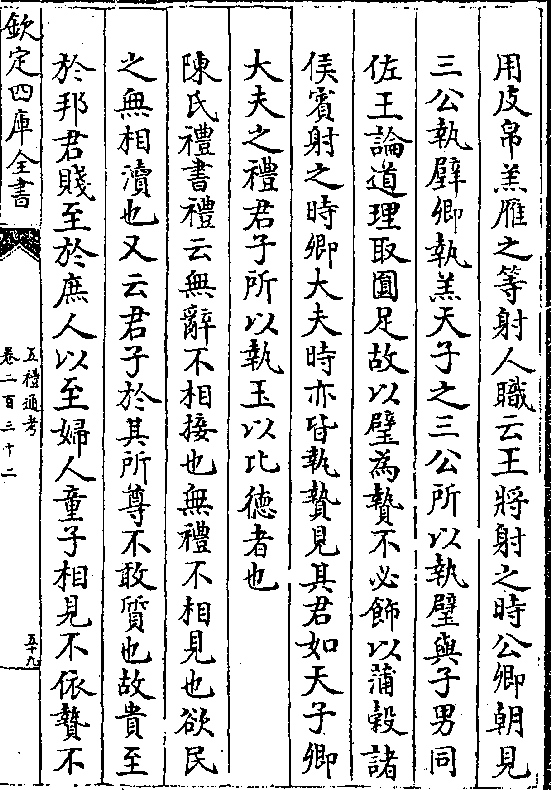 用皮帛羔雁之等射人職云王將射之時公卿朝見
三公執璧卿執羔天子之三公所以執璧與子男同
佐王論道理取圓足故以璧為贄不必飾以蒲榖諸
侯賓射之時卿大夫時亦皆執贄見其君如天子卿
大夫之禮君子所以執玉以比徳者也
陳氏禮書禮云無辭不相接也無禮不相見也欲民
之無相瀆也又云君子於其所尊不敢質也故貴至
於邦君賤至於庶人以至婦人童子相見不依贄不
欽定四庫全書
五禮通考
卷二百二十二
五十九